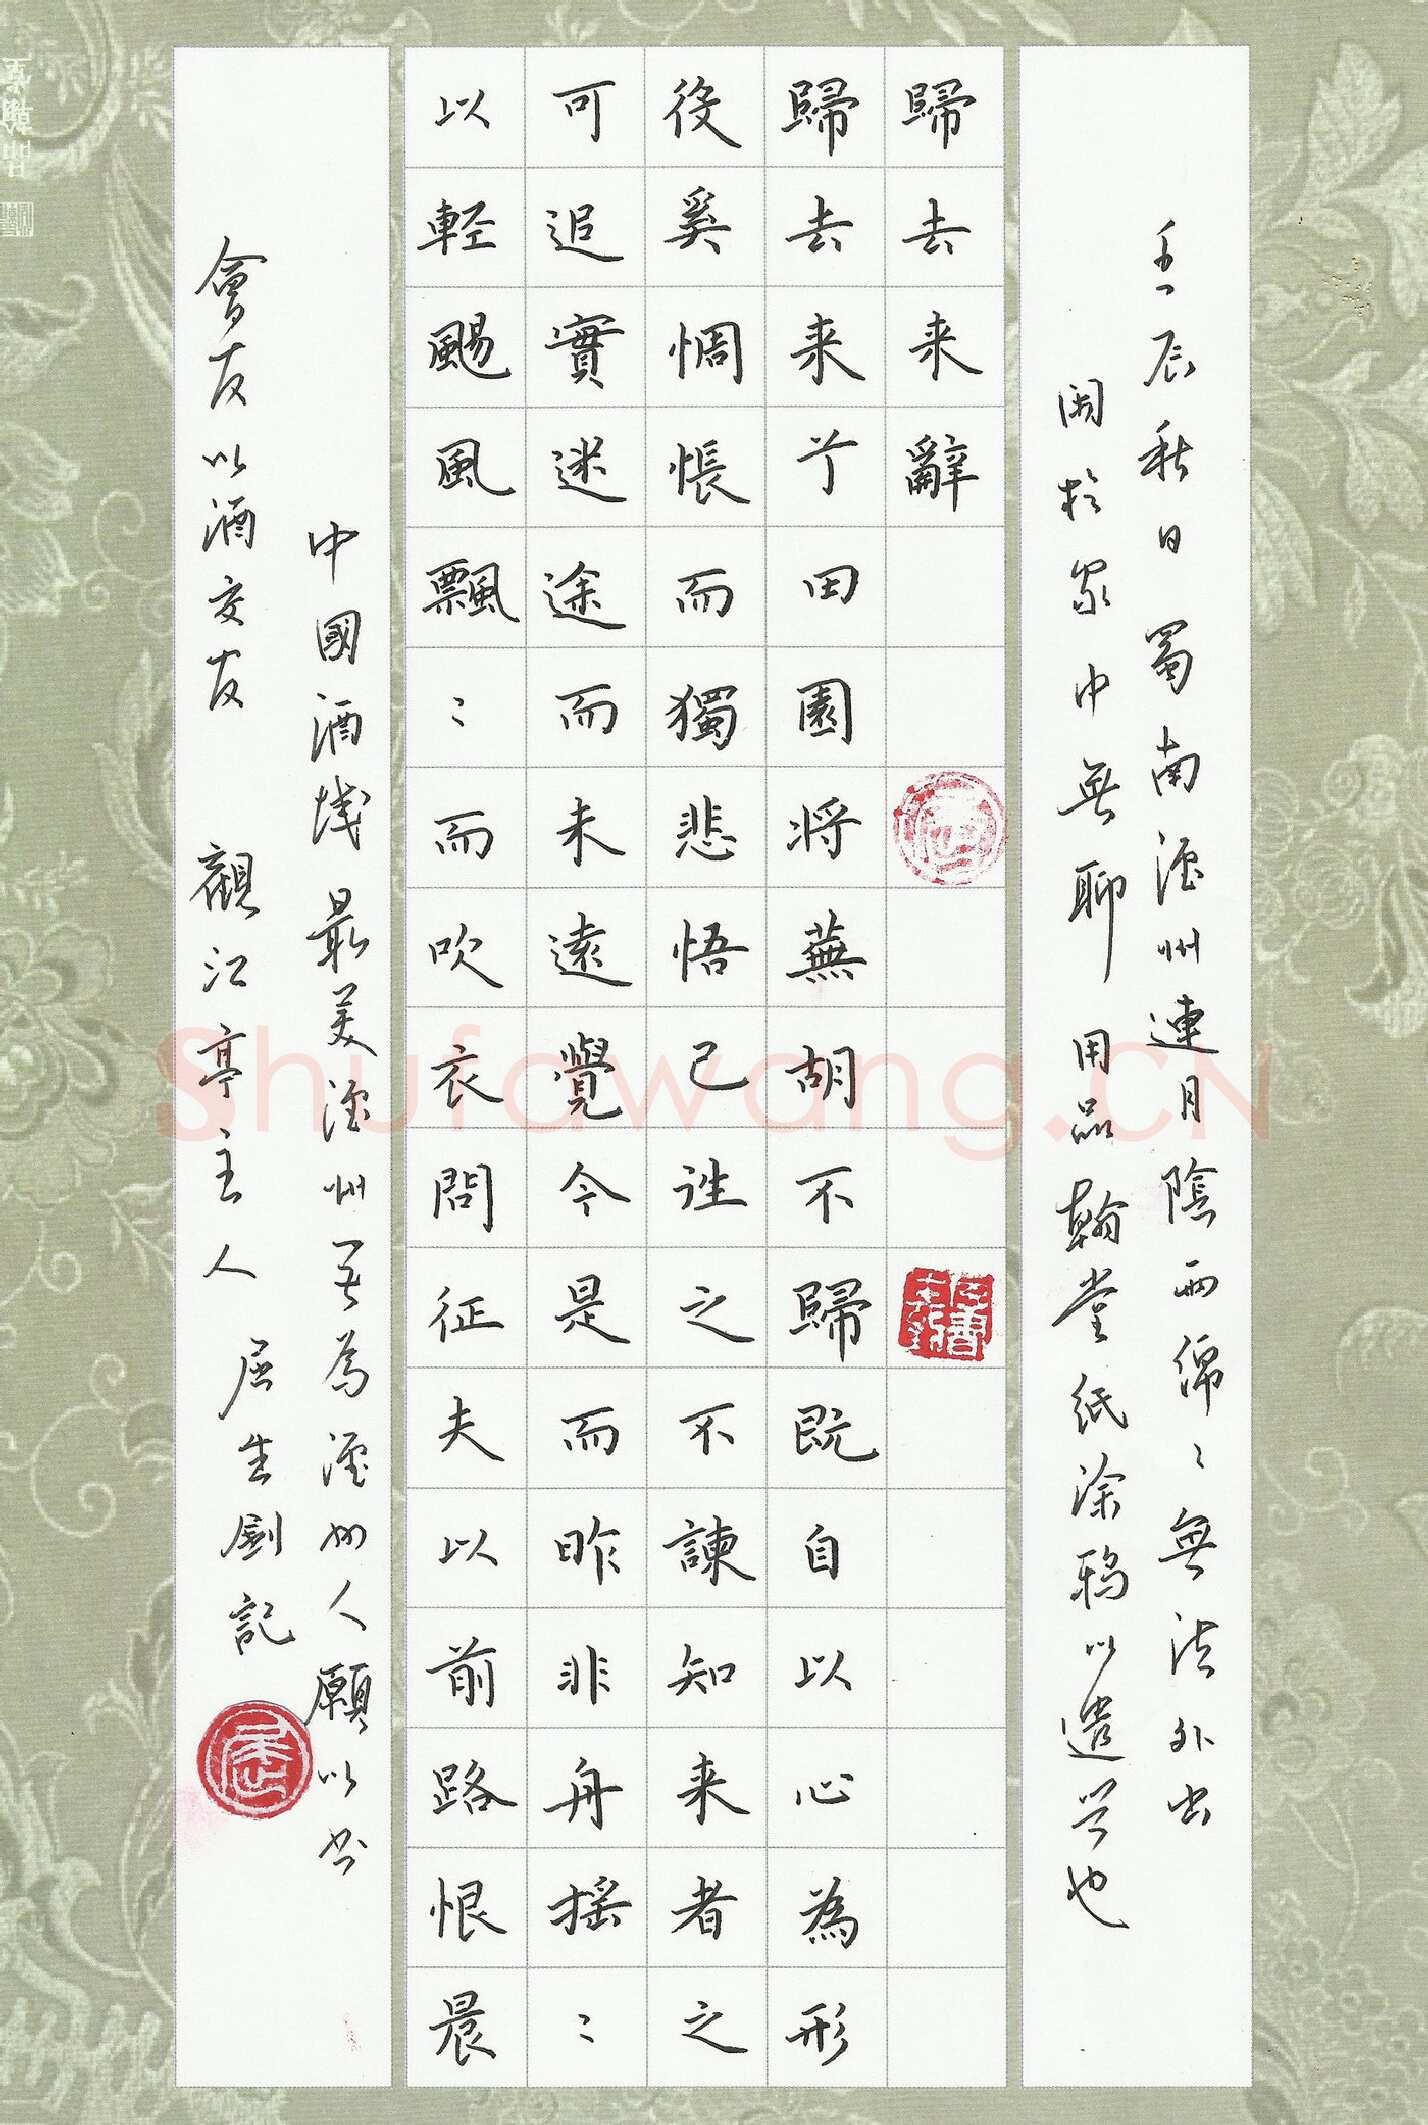 壬辰秋日蜀南酒州連月陰雨綿〻無法外出
閑於家中無聊用品翰堂紙涂鸦以遣兴也
歸去来辭
歸去来兮田園将蕪胡不歸既自以心為形
役奚惆悵而獨悲悟已往之不諫知来者之
可追實迷途而未遠覺今是而昨非舟摇〻
以輕颺風飄〻而吹衣問征夫以前路恨晨
中國酒城最美酒州吾為酒州人願以书
會友以酒交友觀江亭主人屈生劍記
品翰堂
Shufawang.CN